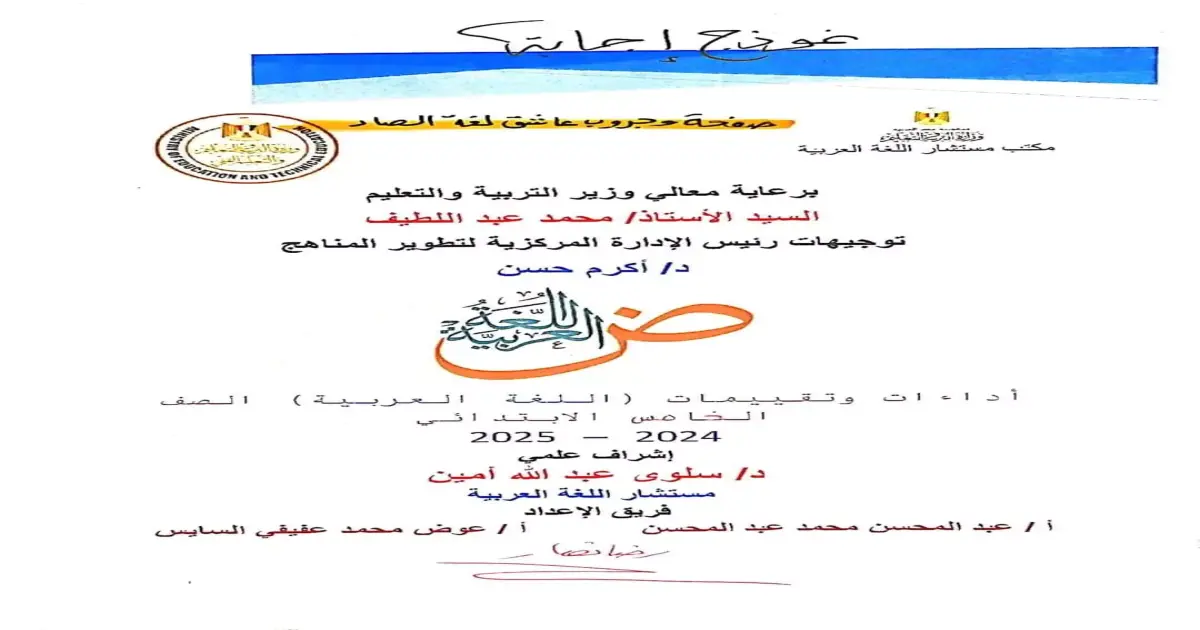 نموذج إجابة
صفحة وجروب عاشق لغة الضاد
وزارة التربية والتعليم
مكتب مستشار اللغة العربية
وزارة التربية والتعليم
والتعليم الفني
MINISTRY OF EDUCATION AND TECHNICAL EDUCATION
برعاية معالي وزير التربية والتعليم
السيد الأستاذ/ محمد عبد اللطيف
توجيهات رئيس الإدارة المركزية لتطوير المناهج
د/ أكرم حسن
ض
اللغة
العربية
أداءات وتقييمات (اللغة العربية) الصف
الخامس الابتدائي
2024 – 2025
إشراف علمي
د/ سلوى عبد الله أمين
مستشار اللغة العربية
فريق الإعداد
أ / عبد المحسن محمد عبد المحسن أ / عوض محمد عفيفي السايس